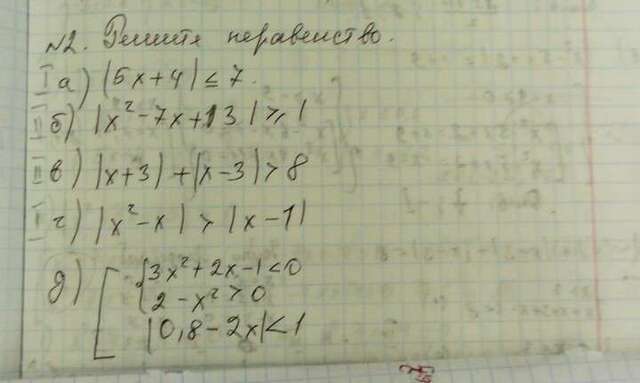 №2. Решите неравенство.
I а) |5x+4| ≤ 7.
II б) |x²-7x+13| ≥ 1
II в) |x+3| + |x-3| > 8
I г) |x²-x| > |x-1|
д) [ { 3x²+2x-1<0
2-x²>0
|0,8-2x|<1